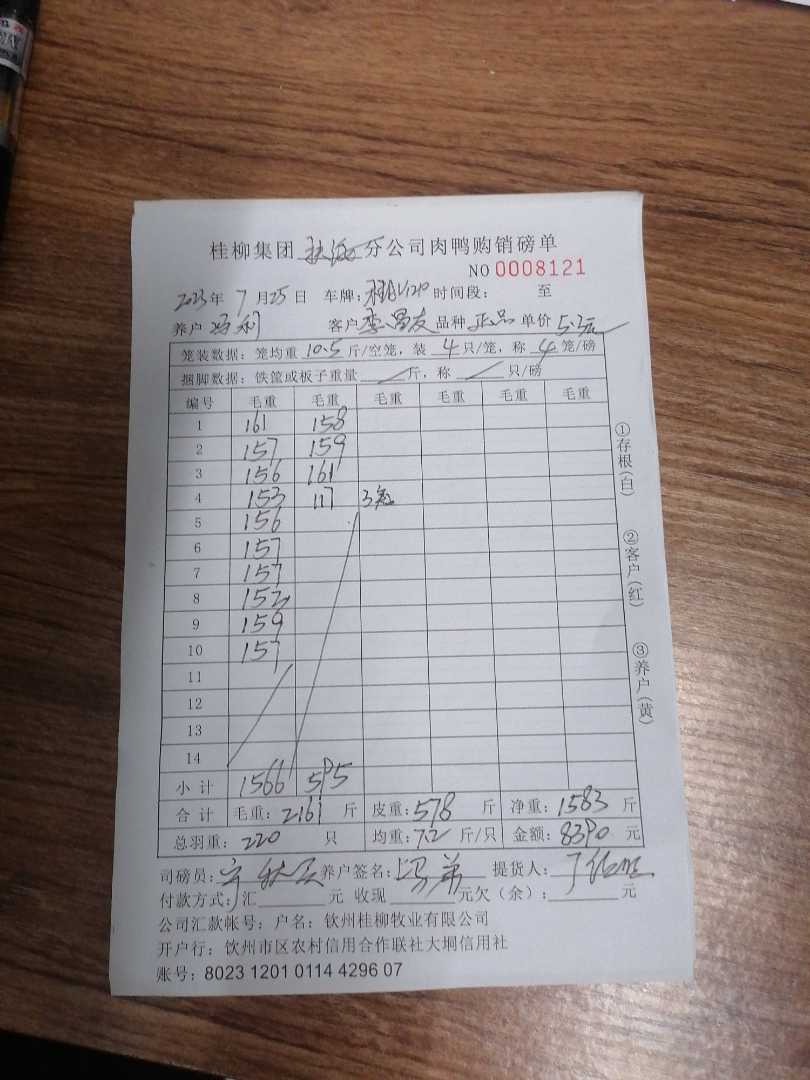 桂柳集团 分公司肉鸭购销磅单
NO 0008121
2023年 7月25日 车牌: 时间段: 至
养户 冯利 客户 李昌友 品种 正品 单价 5.3元
笼装数据: 笼均重 10.5 斤/空笼, 装 4 只/笼, 称 4 笼/磅
捆脚数据: 铁筐或板子重量 / 斤, 称 / 只/磅
编号 毛重 毛重 毛重 毛重 毛重 毛重
1 161 158
2 157 159
3 156 161
4 153 117 3笼
5 156
6 157
7 157
8 152
9 159
10 157
11
12
13
14
小计 1566 595
合计 毛重: 2161 斤 皮重: 578 斤 净重: 1583 斤
总羽重: 220 只 均重: 7.2 斤/只 金额: 8390 元
司磅员: 养户签名: 冯弟 提货人:
付款方式: 汇 元 收现 元欠(余): 元
公司汇款帐号: 户名: 钦州桂柳牧业有限公司
开户行: 钦州市区农村信用合作联社大垌信用社
账号: 8023 1201 0114 4296 07
①存根(白)
②客户(红)
③养户(黄)